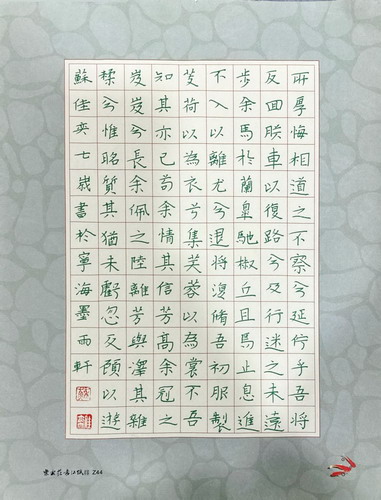 所厚悔相道之不察兮延佇乎吾將
反回朕車以復路兮及行迷之未遠
步余馬於蘭皋馳椒丘且焉止息進
不入以離尤兮退將復脩吾初服製
芰荷以為衣兮集芙蓉以為裳不吾
知其亦已苟余情其信芳高余冠之
岌岌兮長余佩之陸離芳與澤其雜
糅兮惟昭質其猶未虧忽反顧以遊
蘇佳奕七歲書於寧海墨雨軒
Z44